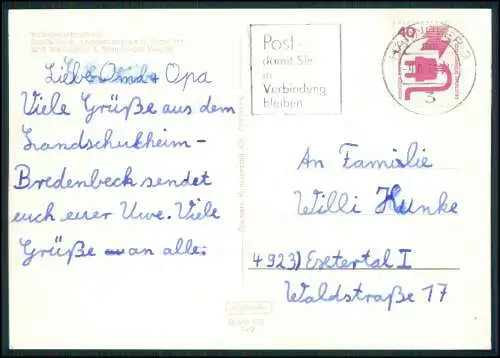 Liebe Oma + Opa
Viele Grüße aus dem
Landschulheim-
Bredenbeck sendet
euch eurer Uwe. Viele
Grüße an alle.
Post-
damit Sie
in
Verbindung
bleiben
40
HANNOVER
3
An Familie
Willi Hunke
4923) Extertal I
Waldstraße 17